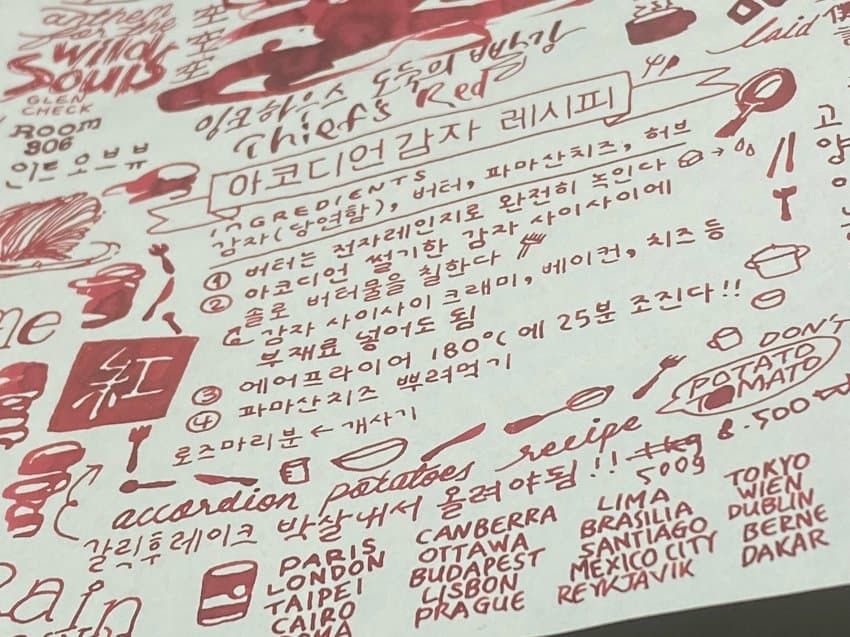 anthem
for the
Wild
Souls
GLEN
CHECK
ROOM
306
인트 오브 뷰
잉크하우스 도둑의 빨강
Thief's Red
아코디언 감자 레시피
INGREDIENTS
감자(당연함), 버터, 파마산치즈, 허브
① 버터는 전자레인지로 완전히 녹인다
② 아코디언 썰기한 감자 사이사이에
솔로 버터물을 칠한다
감자 사이사이 크래미, 베이컨, 치즈 등
부재료 넣어도 됨
③ 에어프라이어 180°C에 25분 조진다!!
④ 파마산치즈 뿌려먹기
로즈마리분 ← 개사기
紅
accordion potatoes recipe
갈릭후레이크 박살내서 올려야됨!!
1kg
500g
8.500
DON'T
POTATO
TOMATO
laid
PARIS
LONDON
TAIPEI
CAIRO
ROMA
CANBERRA
OTTAWA
BUDAPEST
LISBON
PRAGUE
LIMA
BRASILIA
SANTIAGO
MEXICO CITY
REYKJAVIK
TOKYO
WIEN
DUBLIN
BERNE
DAKAR